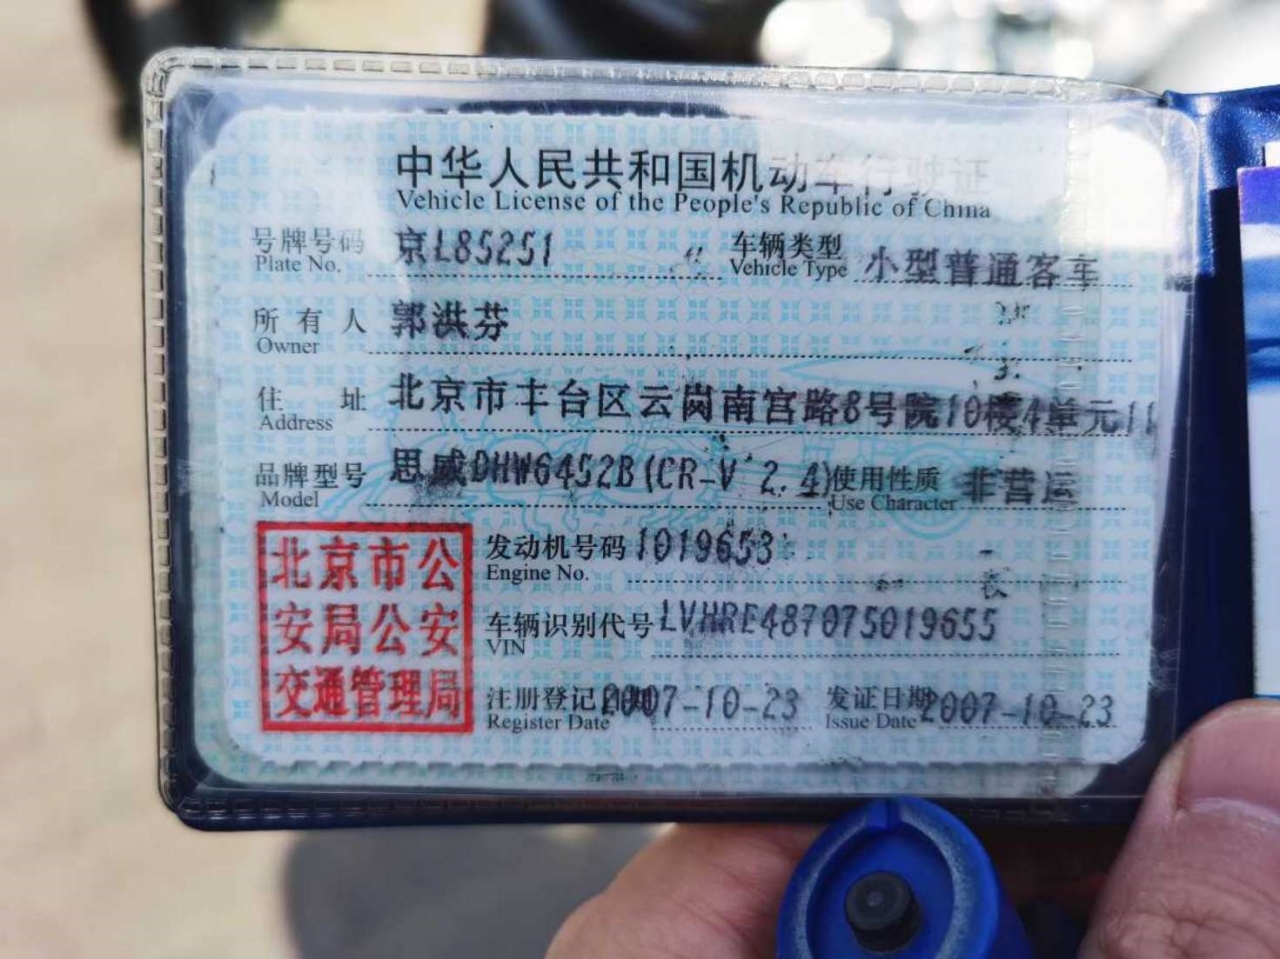 中华人民共和国机动车行驶证
Vehicle License of the People's Republic of China
号牌号码 京L85251 车辆类型 小型普通客车
Plate No. Vehicle Type
所有人 郭洪芬
Owner
住址 北京市丰台区云岗南宫路8号院10楼4单元11
Address
品牌型号 思威DHW6452B(CR-V 2.4) 使用性质 非营运
Model Use Character
北京市公
安局公安
交通管理局
发动机号码 1019653
Engine No.
车辆识别代号 LVHRE487075019655
VIN
注册登记日期 2007-10-23 发证日期 2007-10-23
Register Date Issue Date